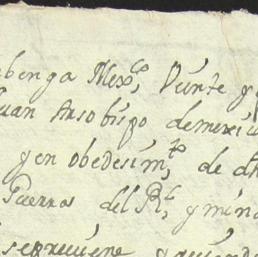 benga Mexco, Veinte y
Juan Arsobispo demexico
y en obedesimto de
Guerras del Rl, y mina
se previene